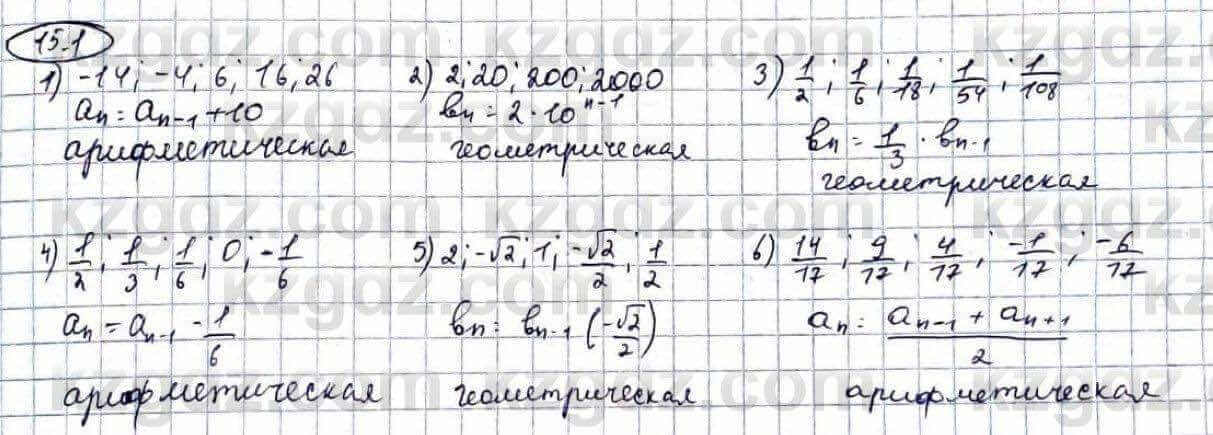 15.1
1) -14; -4; 6; 16; 26
aₙ = aₙ₋₁ + 10
арифметическая
2) 2; 20; 200; 2000
bₙ = 2 · 10ⁿ⁻¹
геометрическая
3) 1/2; 1/6; 1/18; 1/54; 1/108
bₙ = 1/3 · bₙ₋₁
геометрическая
4) 1/2; 1/3; 1/6; 0; -1/6
aₙ = aₙ₋₁ - 1/6
арифметическая
5) 2; -√2; 1; -√2/2; 1/2
bₙ = bₙ₋₁ (-√2/2)
геометрическая
6) 14/17; 9/17; 4/17; -1/17; -6/17
aₙ = (aₙ₋₁ + aₙ₊₁)/2
арифметическая
kzgdz.com